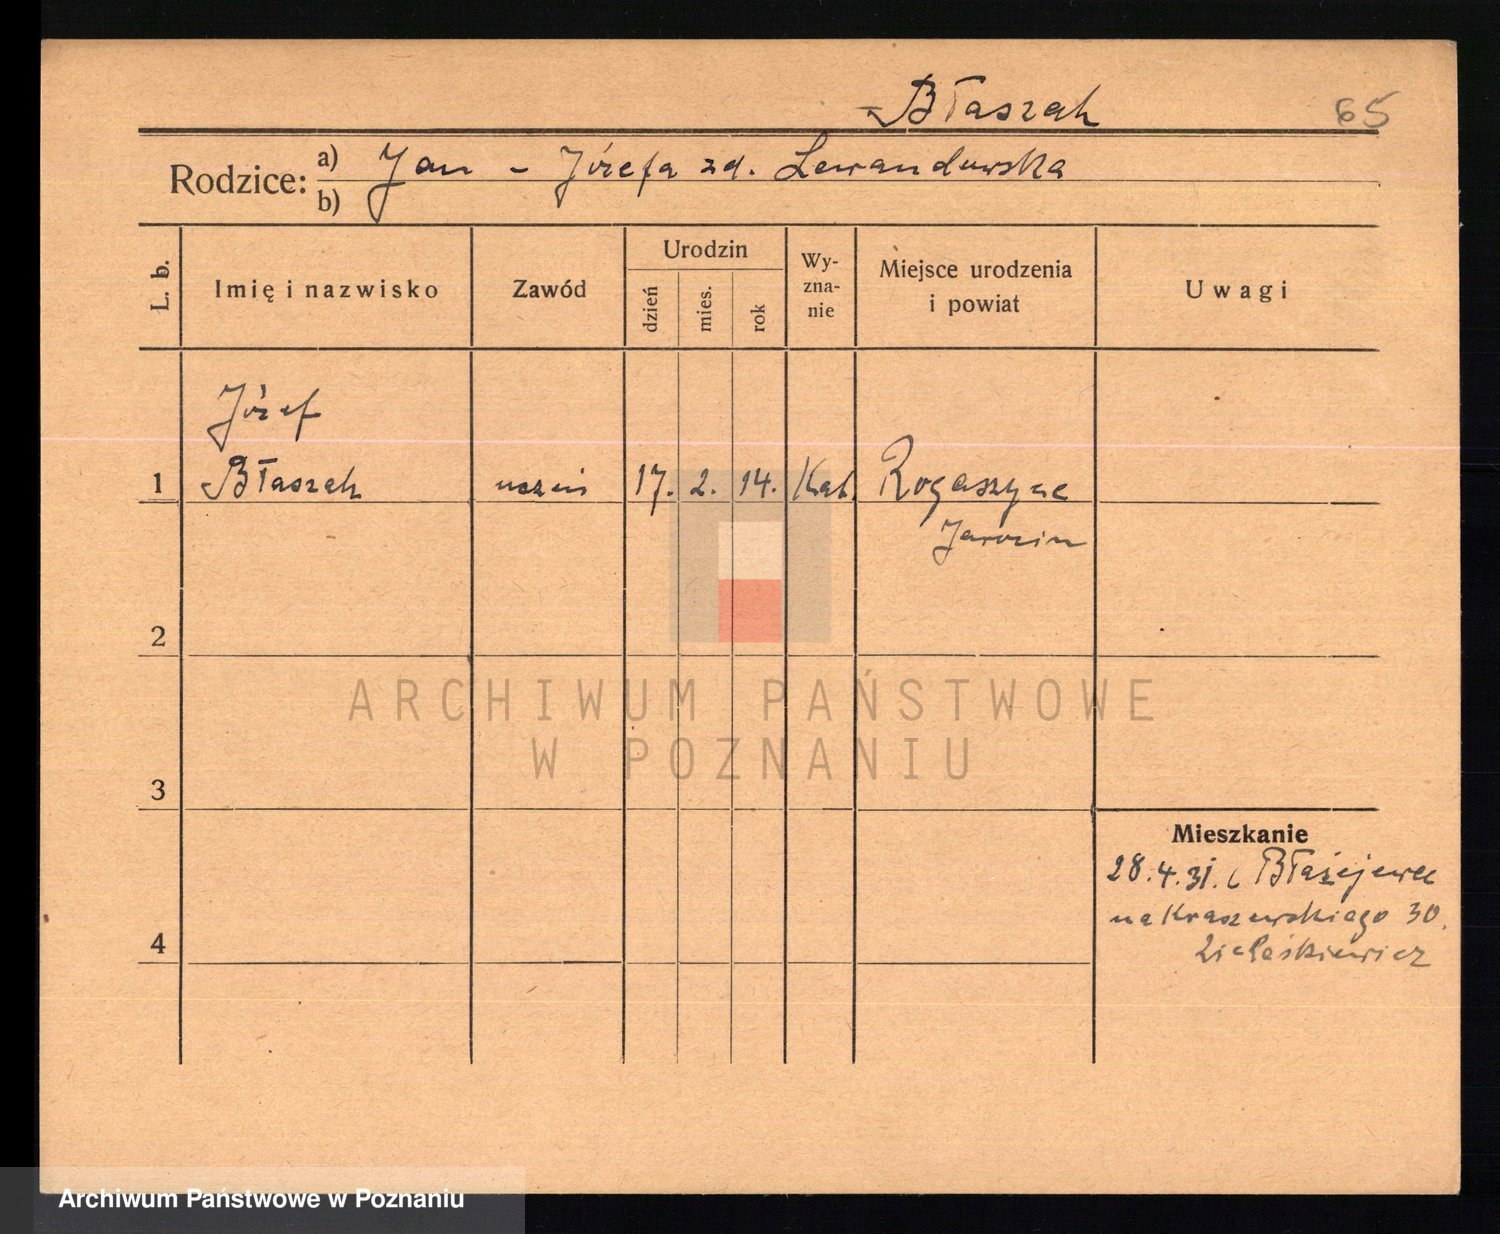 Błaszak 65
Rodzice: a) Jan - Józefa zd. Lewandowska
b)
L. b. Imię i nazwisko Zawód Urodzin dzień mies. rok Wy-zna-nie Miejsce urodzenia i powiat Uwagi
Józef
1 Błaszak uczeń 17. 2. 14. Kat. Rogaszyce
Jarocin
2
ARCHIWUM PAŃSTWOWE
W POZNANIU
3
Mieszkanie
28.4.31.
na Kraszewskiego 30.
4
Archiwum Państwowe w Poznaniu